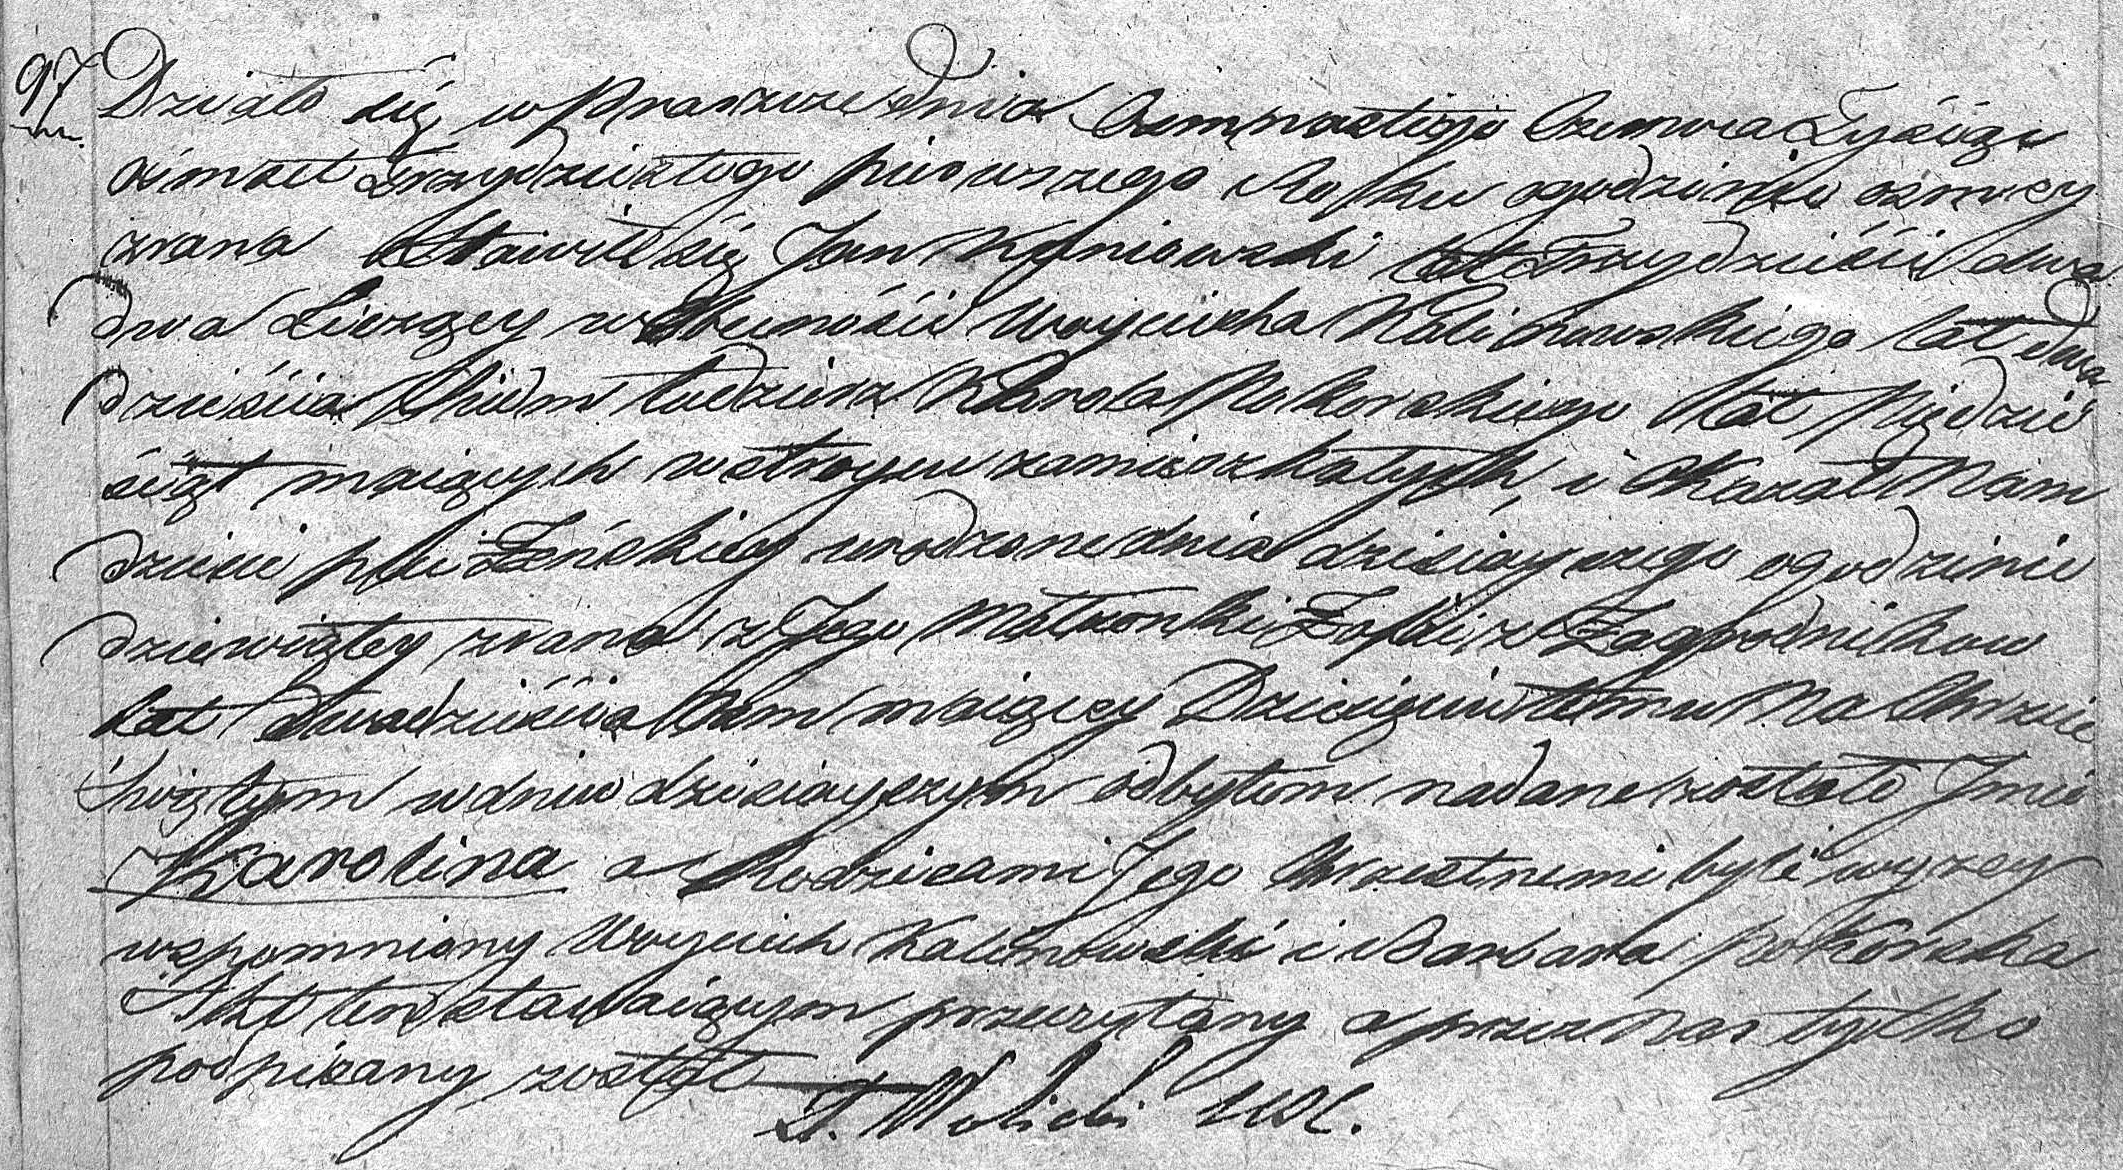 97
Działo się w Praszce dnia Osmnastego Czerwca Tysiąc
ośmset Trzydziestego pierwszego Roku ogodzinie osmey
zrana Stawił się Jan lat Trzydzieści dwa
dwa Liczący w Obecności Woyciecha Kalinowskiego lat dwa
dzieścia Siedm tudziesz Karola Pokorskiego lat Pięćdzie
siąt maiących w zamieszkałych, i Okazał Nam
dziecie płci Żeńskiey urodzone dnia dzisieyszego ogodzinie
dziewiątey zrana z Jego Małżonki Zofii z Zagrodników
lat dwadzieścia Osm maiącey Dziecięciu temu Na Chrzcie
Świętym wdniu dzisieyszym odbytem nadane zostało Imie
Karolina a Rodzicami Jego Chrzestnemi byli wyżey
wspomniony Woyciech Kalinowski i Barbara Pokorska
Akt ten stawaiącym przeczytany a przez Nas tylko
podpisany został